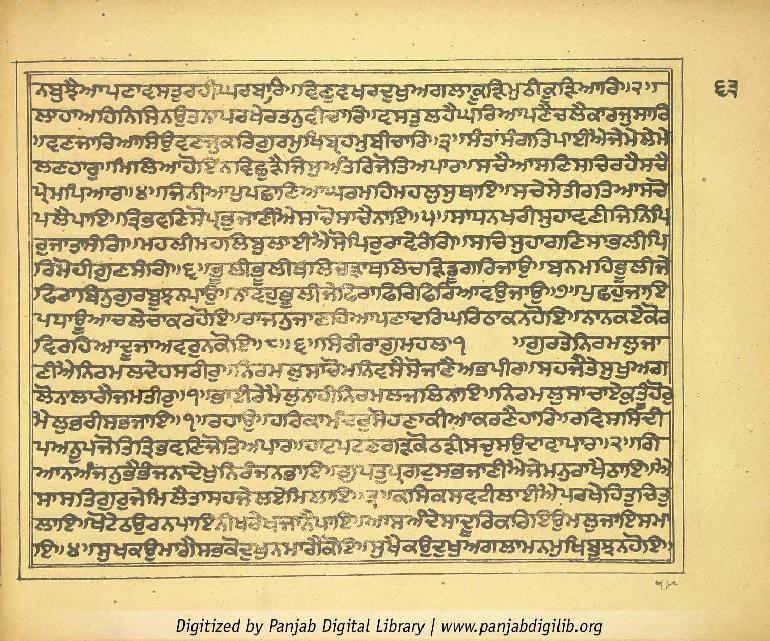 ਨਬੁਝੈਆਪਣਾਵਸਤੁਰਹੀਘਰਬਾਰਿ॥ਵਿਣੁਵਖਰਦੁਖੁਅਗਲਾਕੂੜਿਮੁਠੀਕੂੜਿਆਰਿ॥੨॥
ਲਾਹਾਅਹਿਨਿਸਿਨਉਤਨਾਪਰਖੇਰਤਨੁਵੀਚਾਰਿ॥ਵਸਤੁਲਹੈਘਰਿਆਪਣੈਚਲੈਕਾਰਜੁਸਾਰਿ
॥ਵਣਜਾਰਿਆਸਿਉਵਣਜੁਕਰਿਗੁਰਮੁਖਿਬ੍ਰਹਮੁਬੀਚਾਰਿ॥੩॥ਸੰਤਾਂਸੰਗਤਿਪਾਈਐਜੇਮੇਲੇਮੇ
ਲਣਹਾਰੁ॥ਮਿਲਿਆਹੋਇਨਵਿਛੁੜੈਜਿਸੁਅੰਤਰਿਜੋਤਿਅਪਾਰ॥ਸਚੈਆਸਣਿਸਚਿਰਹੈਸਚੈ
ਪ੍ਰੇਮਪਿਆਰ॥੪॥ਜਿਨੀਆਪੁਪਛਾਣਿਆਘਰਮਹਿਮਹਲੁਸੁਥਾਇ॥ਸਚੇਸੇਤੀਰਤਿਆਸਚੋ
ਪਲੈਪਾਇ॥ਤ੍ਰਿਭਵਣਿਸੋਪ੍ਰਭੁਜਾਣੀਐਸਾਚੋਸਾਚੈਨਾਇ॥੫॥ਸਾਧਨਖਰੀਸੁਹਾਵਣੀਜਿਨਿਪਿ
ਰੁਜਾਤਾਸੰਗਿ॥ਮਹਲੀਮਹਲਿਬੁਲਾਈਐਸੋਪਿਰੁਰਾਵੇਰੰਗਿ॥ਸਚਿਸੁਹਾਗਣਿਸਾਭਲੀਪਿ
ਰਿਮੋਹੀਗੁਣਸੰਗਿ॥੬॥ਭੂਲੀਭੂਲੀਥਲਿਚੜਾਥਲਿਚੜਿਡੂਗਰਿਜਾਉ॥ਬਨਮਹਿਭੂਲੀਜੇ
ਫਿਰਾਬਿਨੁਗੁਰਬੂਝਨਪਾਉ॥ਨਾਵਹੁਭੂਲੀਜੇਫਿਰਾਫਿਰਿਫਿਰਿਆਵਉਜਾਉ॥੭॥ਪੁਛਹੁਜਾਇ
ਪਧਾਊਆਚਲੇਚਾਕਰਹੋਇ॥ਰਾਜਨੁਜਾਣਹਿਆਪਣਾਦਰਿਘਰਿਠਾਕਨਹੋਇ॥ਨਾਨਕਏਕੋਰ
ਵਿਰਹਿਆਦੂਜਾਅਵਰੁਨਕੋਇ॥੮॥੬॥ਸਿਰੀਰਾਗੁਮਹਲਾ੧ ॥ਗੁਰਤੇਨਿਰਮਲੁਜਾ
ਣੀਐਨਿਰਮਲਦੇਹਸਰੀਰੁ॥ਨਿਰਮਲੁਸਾਚੋਮਨਿਵਸੈਸੋਜਾਣੈਅਭਪੀਰ॥ਸਹਜੈਤੇਸੁਖੁਅਗ
ਲੋਨਲਾਗੈਜਮਤੀਰੁ॥੧॥ਭਾਈਰੇਮੈਲੁਨਾਹੀਨਿਰਮਲਜਲਿਨਾਇ॥ਨਿਰਮਲੁਸਾਚਾਏਕੁਤੂਹੋਰੁ
ਮੈਲੁਭਰੀਸਭਜਾਇ॥੧॥ਰਹਾਉ॥ਹਰਿਕਾਮੰਦਰੁਸੋਹਣਾਕੀਆਕਰਣੈਹਾਰਿ॥ਰਵਿਸਸਿਦੀ
ਪਅਨੂਪਜੋਤਿਤ੍ਰਿਭਵਣਿਜੋਤਿਅਪਾਰ॥ਹਾਟਪਟਣਗੜਕੋਠੜੀਸਚੁਸਉਦਾਵਾਪਾਰ॥੨॥ਗਿ
ਆਨਅੰਜਨੁਭੈਭੰਜਨਾਦੇਖੁਨਿਰੰਜਨਭਾਇ॥ਗੁਪਤੁਪ੍ਰਗਟੁਸਭਜਾਣੀਐਜੇਮਨੁਰਾਖੈਠਾਇ॥ਐ
ਸਾਸਤਿਗੁਰੁਜੇਮਿਲੈਤਾਸਹਜੇਲਏਮਿਲਾਇ॥੩॥ਕਸਿਕਸਵਟੀਲਾਈਐਪਰਖੇਹਿਤੁਚਿਤੁ
ਲਾਇ॥ਖੋਟੇਠਉਰਨਪਾਇਨੀਖਰੇਖਜਾਨੈਪਾਇ॥ਆਸਅੰਦੇਸਾਦੂਰਿਕਰਿਇਉਮਲੁਜਾਇਸਮਾ
ਇ॥੪॥ਸੁਖਕਉਮਾਗੈਸਭਕੋਦੁਖੁਨਮਾਗੈਕੋਇ॥ਸੁਖੈਕਉਦੁਖੁਅਗਲਾਮਨਮੁਖਿਬੂਝਨਹੋਇ॥
੬੩
Digitized by Panjab Digital Library | www.panjabdigilib.org